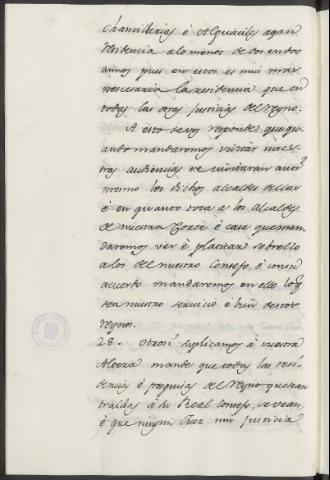 chanillerias é Alguaciles agan
residencia a lo menos de dos en dos
annos pues en ellos es mui mas
nescesaria la residencia que en
todas las otras Justicias del reyno.
A esto se vos responde que qu
ando mandaremos visitar nues
tras audiencias se visitaran ansi
mesmo los dichos alcaldes dellas
é en quanto toca a los Alcaldes
de nuestra Corte é casa queman
daremos ver é platicar sobrello
a los del nuestro Consejo é con su
acuerdo mandaremos en ello loq.
sea nuestro servicio é bien destos
reynos.
28. Otrosi suplicamos á vuestra
Alteza mande que todas las resi
dencias é pesquisas del reyno que sean
traidas á su Real Consejo, se vean,
é que ningun Juez nin Justicia